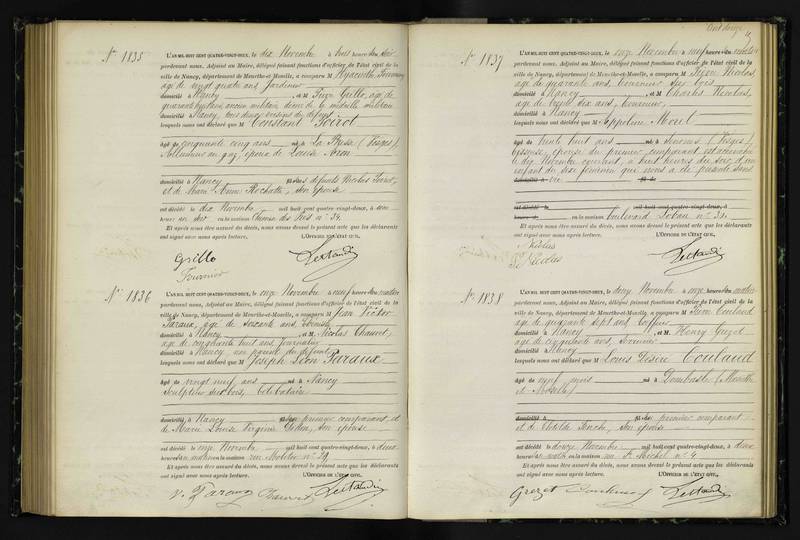 Nº 1835
L'AN MIL HUIT CENT QUATRE-VINGT-DEUX, le dix Novembre à trois heures du soir
pardevant nous, Adjoint au Maire, délégué faisant fonctions d'officier de l'état civil de la
ville de Nancy, département de Meurthe-et-Moselle, a comparu M Hyacinthe Fournier
âgé de vingt quatre ans, jardinier
domicilié à Nancy, et M Grillo, âgé de
quarante ans, ancien militaire décoré de la médaille militaire
domicilié à Nancy, tous deux voisins du défunt
lesquels nous ont déclaré que M Constant Poirot
âgé de cinquante cinq ans né à La Bresse (Vosges)
allumeur au gaz, époux de Louise Aron
domicilié à Nancy fils des défunts Nicolas Poirot,
et de Marie Anne, son épouse
est décédé le dix Novembre mil huit cent quatre-vingt-deux, à une
heure du soir en la maison Chemin des Prés nº 34.
Et après nous être assuré du décès, nous avons dressé le présent acte que les déclarants
ont signé avec nous après lecture. L'OFFICIER DE L'ÉTAT CIVIL,
Grillo
Fournier
Nº 1836
L'AN MIL HUIT CENT QUATRE-VINGT-DEUX, le onze Novembre à neuf heures du matin
pardevant nous, Adjoint au Maire, délégué faisant fonctions d'officier de l'état civil de la
ville de Nancy, département de Meurthe-et-Moselle, a comparu M Jean Victor
Paraux, âgé de soixante ans,
domicilié à Nancy, et M Nicolas Chauvet,
âgé de cinquante huit ans, journalier
domicilié à Nancy, non parent du défunt
lesquels nous ont déclaré que M Joseph Léon Paraux
âgé de vingt neuf ans né à Nancy
sculpteur sur bois, célibataire
domicilié à Nancy fils du premier comparant, et
de Marie Louise Virginie, son épouse
est décédé le onze Novembre mil huit cent quatre-vingt-deux, à deux
heures du matin en la maison rue Molitor nº 29
Et après nous être assuré du décès, nous avons dressé le présent acte que les déclarants
ont signé avec nous après lecture. L'OFFICIER DE L'ÉTAT CIVIL,
V. Paraux
Nº 1837
L'AN MIL HUIT CENT QUATRE-VINGT-DEUX, le onze Novembre à neuf heures du matin
pardevant nous, Adjoint au Maire, délégué faisant fonctions d'officier de l'état civil de la
ville de Nancy, département de Meurthe-et-Moselle, a comparu M Nicolas
âgé de quarante ans, tourneur sur bois
domicilié à Nancy, et M Charles Nicolas,
âgé de trente six ans, tourneur,
domicilié à Nancy
lesquels nous ont déclaré que M
âgé de trente huit ans né à Senones (Vosges)
épouse du premier comparant est accouchée
le dix Novembre courant, à huit heures du soir, d'un
enfant du sexe féminin qui nous a été présenté sans
vie
en la maison boulevard Lobau nº 32.
Et après nous être assuré du décès, nous avons dressé le présent acte que les déclarants
ont signé avec nous après lecture. L'OFFICIER DE L'ÉTAT CIVIL,
Nicolas
C Nicolas
Nº 1838
L'AN MIL HUIT CENT QUATRE-VINGT-DEUX, le douze Novembre à onze heures du matin
pardevant nous, Adjoint au Maire, délégué faisant fonctions d'officier de l'état civil de la
ville de Nancy, département de Meurthe-et-Moselle, a comparu M Couland
âgé de quarante sept ans, coiffeur
domicilié à Nancy, et M Henry Grezet
âgé de cinquante ans,
domicilié à Nancy
lesquels nous ont déclaré que M Louis Désiré Couland
âgé de neuf mois né à Dombasle (Meurthe
et Moselle)
fils du premier comparant
et de Clotilde, son épouse
est décédé le douze Novembre mil huit cent quatre-vingt-deux, à deux
heures du matin en la maison rue St Michel nº 4
Et après nous être assuré du décès, nous avons dressé le présent acte que les déclarants
ont signé avec nous après lecture. L'OFFICIER DE L'ÉTAT CIVIL,
Grezet